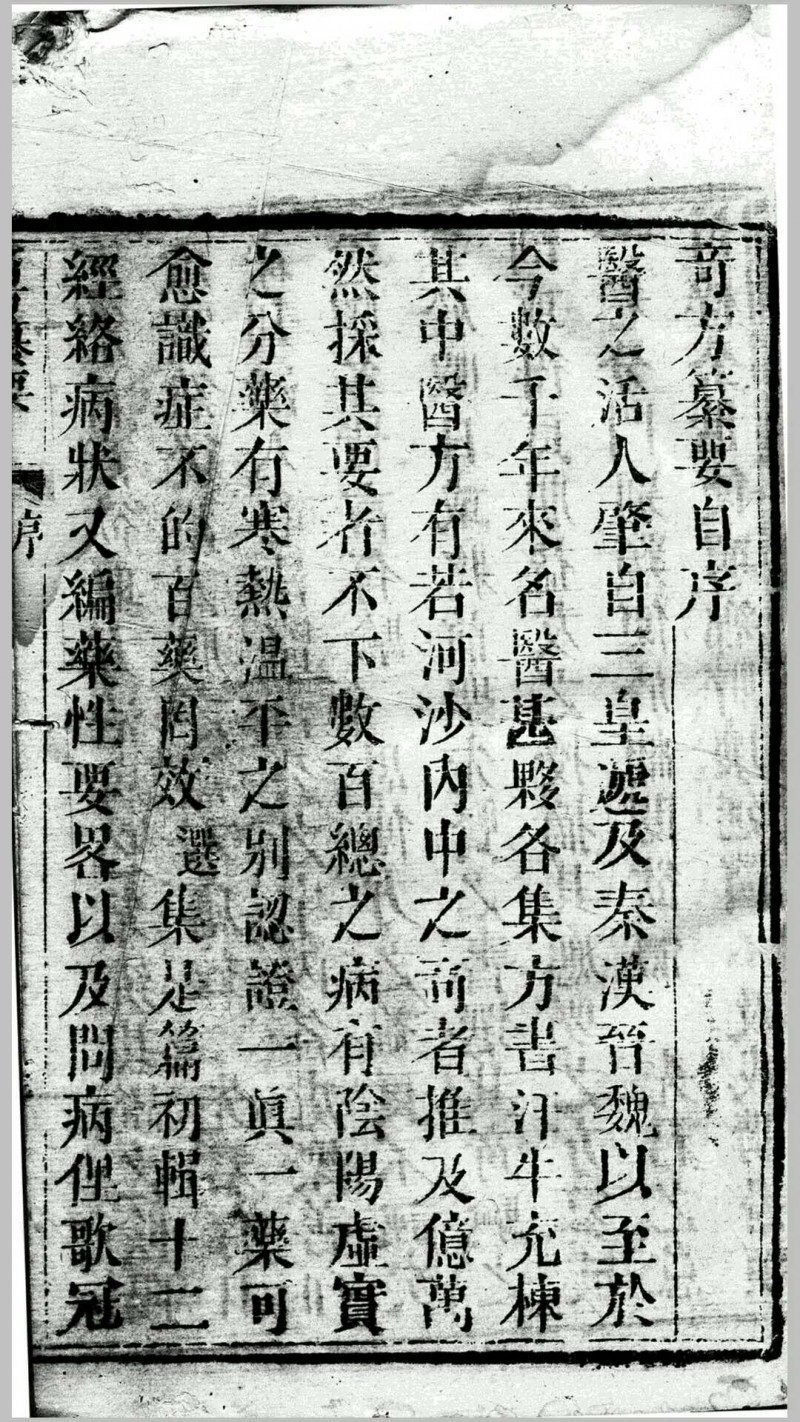 奇方纂要自序
醫之活人肇自三皇遞及秦漢晉魏以至於
今數千年來名醫甚夥各集方書汗牛充棟
其中醫方有若河沙內中之奇者推及億萬
然採其要者不下數百總之病有陰陽虛實
之分藥有寒熱温平之别認證一眞一藥可
愈識症不的百藥罔效選集是篇初輯十二
經絡病狀又編藥性要畧以及問病俚歌冠
纂要
序